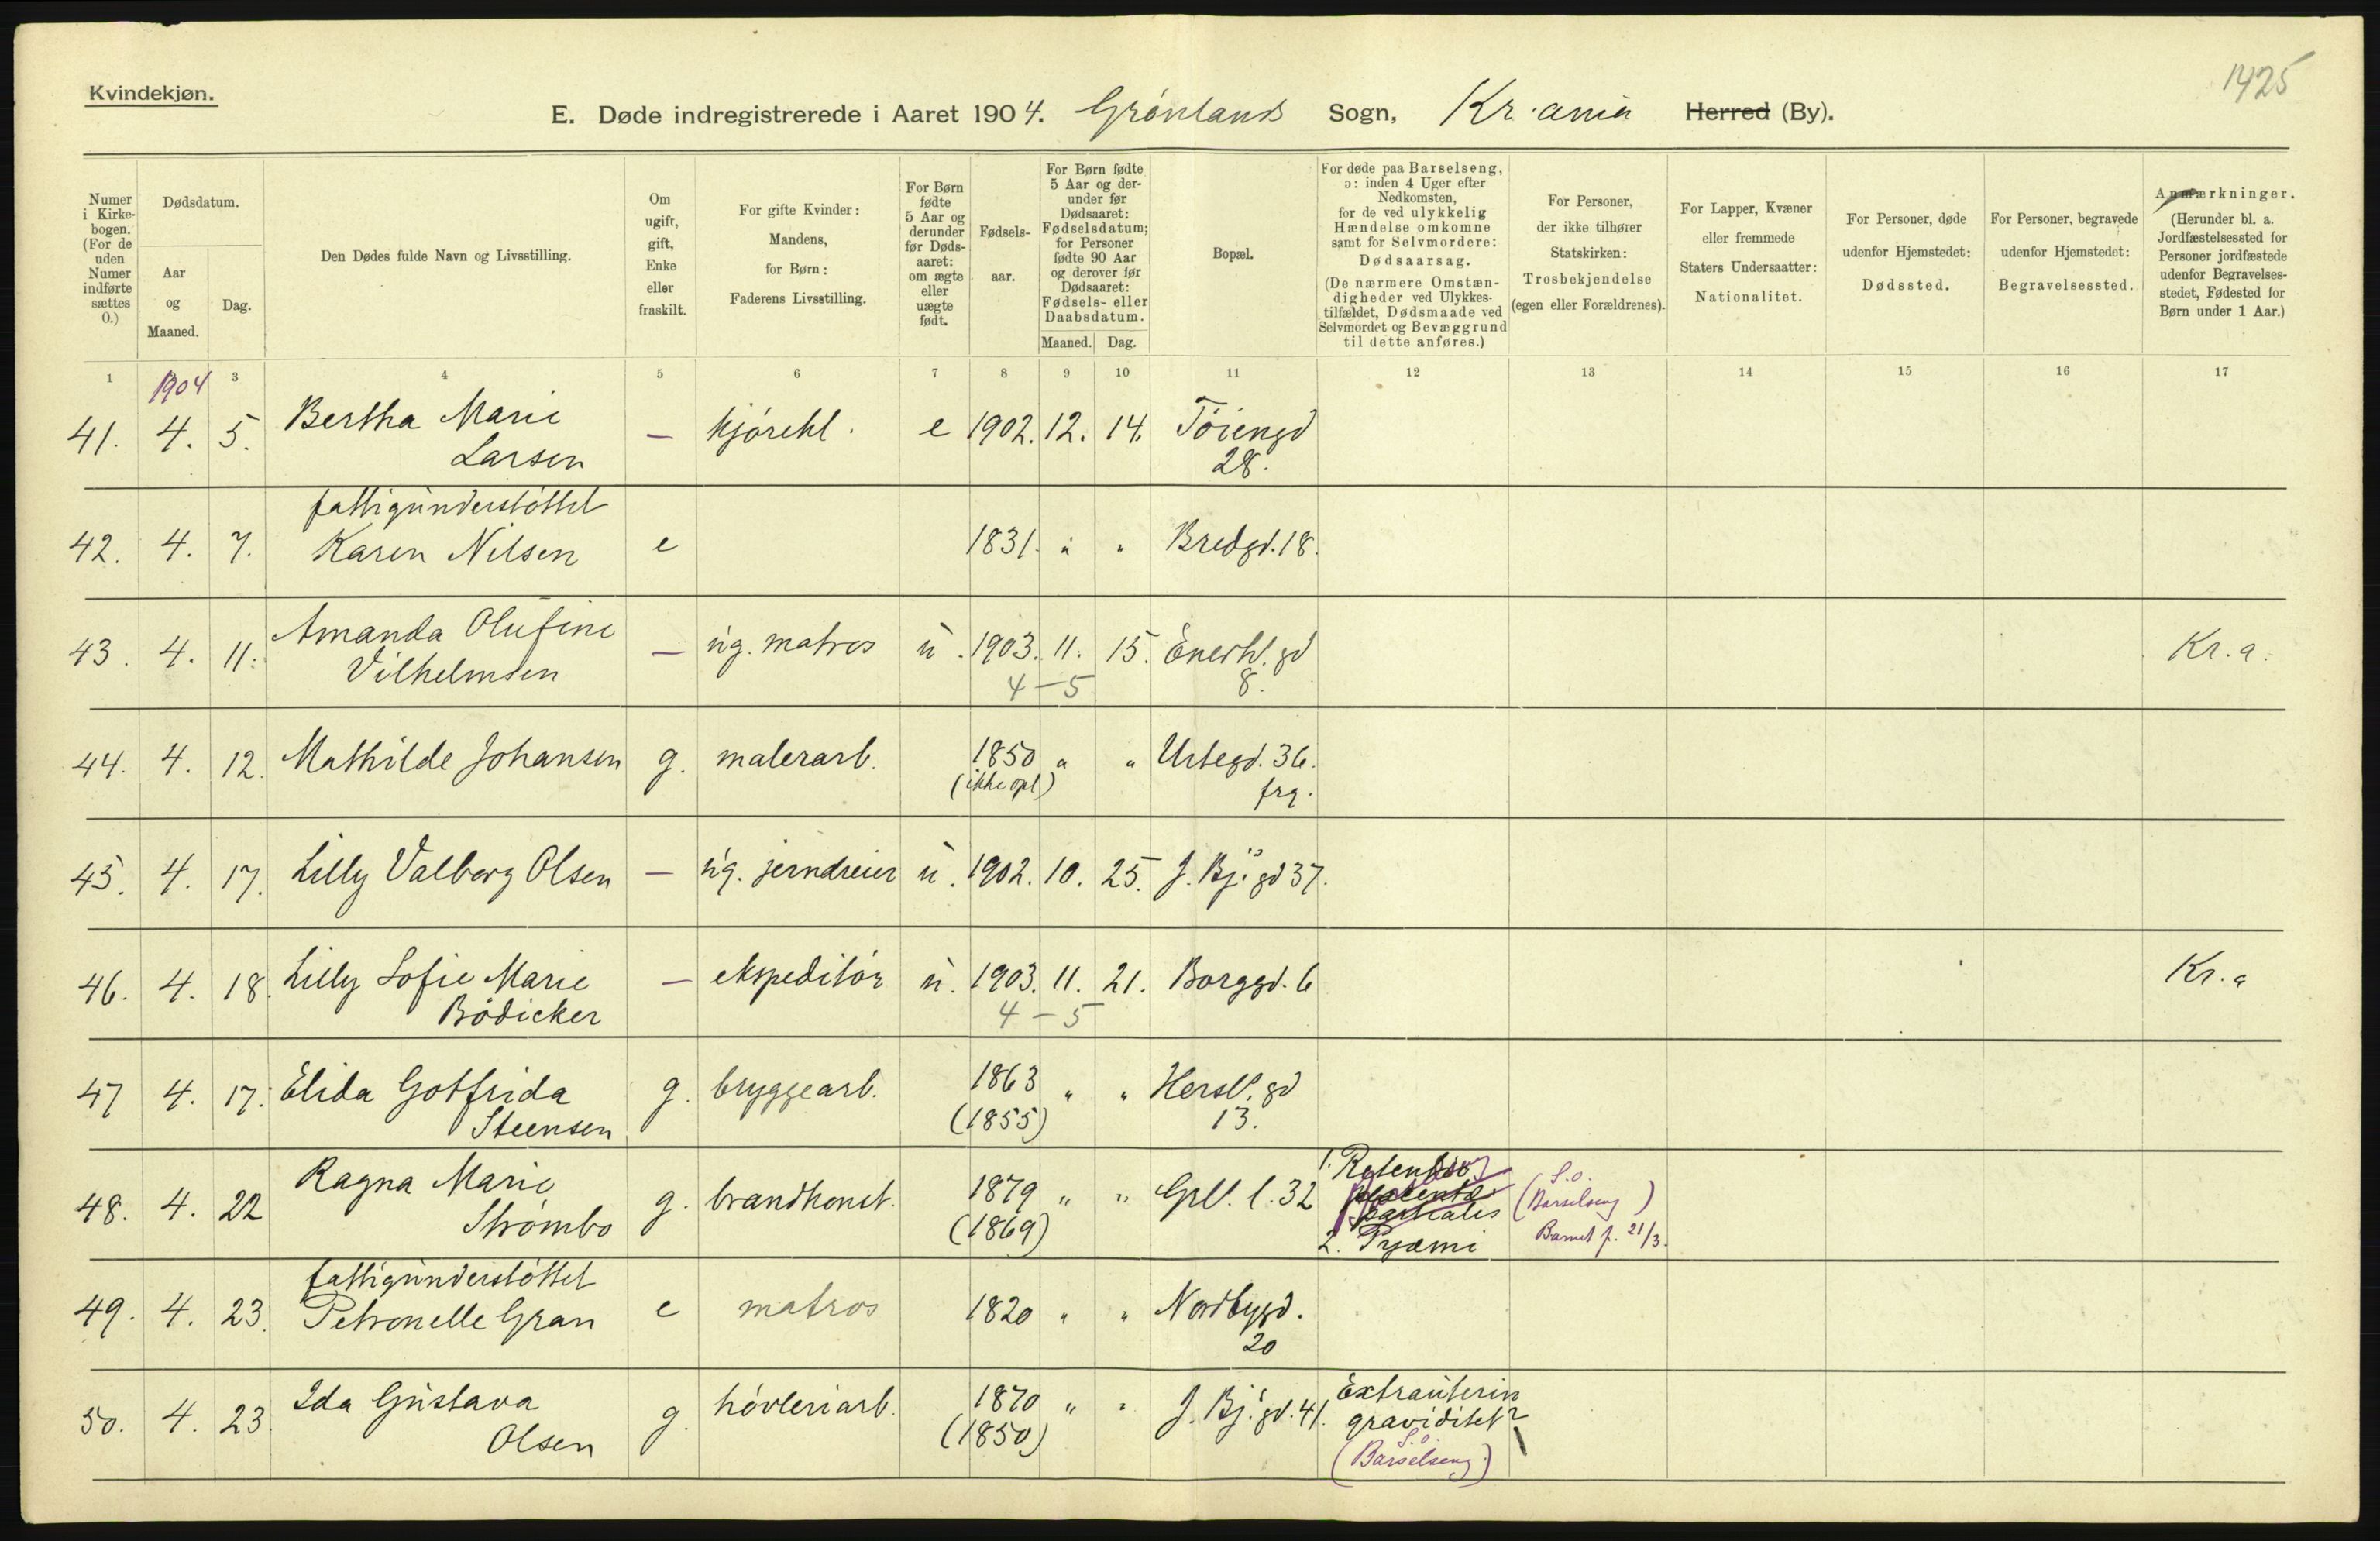 1425
Kvindekjøn.
E. Døde indregistrerede i Aaret 1904. Grønlands Sogn, Kr.ania Herred (By).
Numer i Kirke-bogen. (For de uden Numer indførte sættes 0.)
Dødsdatum.
Aar og Maaned.
Dag.
Den Dødes fulde Navn og Livsstilling.
Om ugift, gift, Enke eller fraskilt.
For gifte Kvinder: Mandens, for Børn: Faderens Livsstilling.
For Børn fødte 5 Aar og derunder før Døds-aaret: om ægte eller uægte født.
Fødsels-aar.
For Børn fødte 5 Aar og der-under før Dødsaaret: Fødselsdatum; for Personer fødte 90 Aar og derover før Dødsaaret: Fødsels- eller Daabsdatum.
Maaned. Dag.
Bopæl.
For døde paa Barselseng, ɔ: inden 4 Uger efter Nedkomsten, for de ved ulykkelig Hændelse omkomne samt for Selvmordere: Dødsaarsag. (De nærmere Omstæn-digheder ved Ulykkes-tilfældet, Dødsmaade ved Selvmordet og Bevæggrund til dette anføres.)
For Personer, der ikke tilhører Statskirken: Trosbekjendelse (egen eller Forældrenes).
For Lapper, Kvæner eller fremmede Staters Undersaatter: Nationalitet.
For Personer, døde udenfor Hjemstedet: Dødssted.
For Personer, begravede udenfor Hjemstedet: Begravelsessted.
Anmærkninger. (Herunder bl. a. Jordfæstelsessted for Personer jordfæstede udenfor Begravelses-stedet, Fødested for Børn under 1 Aar.)
1 1904 3 4 5 6 7 8 9 10 11 12 13 14 15 16 17
41. 4. 5. Bertha Marie — kjørekl. e 1902. 12. 14. Tøiengd
Larsen 28.
fattigunderstøttet
42. 4. 7. Karen Nilsen e 1831. " " Bredgd. 18.
43. 4. 11. Amanda Olufine — ug. matros u. 1903. 11. 15. Enerhl. gd Kr.a.
Vilhelmsen 4-5 8.
44. 4. 12. Mathilde Johansen g. malerarb. 1850 " " Urtegd. 36.
(ikke opl) frg.
45. 4. 17. Lilly Valborg Olsen — ug. jerndreier u. 1902. 10. 25. J. Bj. gd 37.
46. 4. 18. Lilly Sofie Marie — ekspeditør u. 1903. 11. 21. Borggd. 6 Kr.a
Bødicker 4-5
47 4. 17. Elida Gotfrida g. bryggearb. 1863 " " Hersl. gd
Steensen (1855) 13.
48. 4. 22 Ragna Marie g. brandkonst. 1879 " " Grl. l. 32 1. Retentio placenta partialis
Strømbo (1869) 2. Pyæmi
S.o. (Barselseng)
Barnet f. 21/3.
fattigunderstøttet
49. 4. 23. Petronelle Gran e matros 1820 " " Nordbygd.
20
50. 4. 23. Ida Gustava g. høvleriarb. 1870 " " J. Bj. gd. 41. Extrauterin
Olsen (1850) graviditet?
S.o.
(Barselseng)